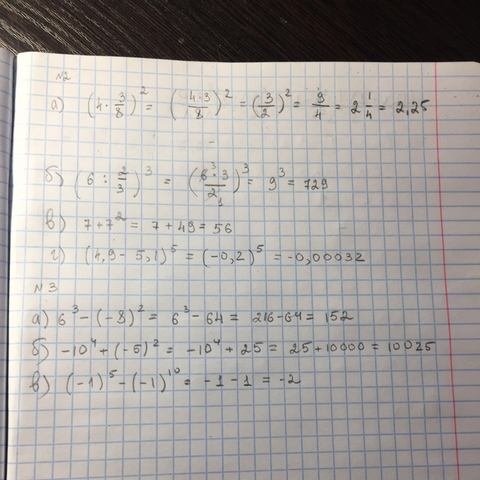 №2
а) (4 · 3/8)² = (4·3/8)² = (3/2)² = 9/4 = 2 1/4 = 2,25
б) (6 : 2/3)³ = (6³·3/2₁)³ = 9³ = 729
в) 7+7² = 7+49 = 56
г) (4,9 - 5,1)⁵ = (-0,2)⁵ = -0,00032
№3
а) 6³ - (-8)² = 6³ - 64 = 216-64 = 152
б) -10⁴ + (-5)² = -10⁴ + 25 = 25 + 10000 = 10025
в) (-1)⁵ - (-1)¹⁰ = -1 - 1 = -2